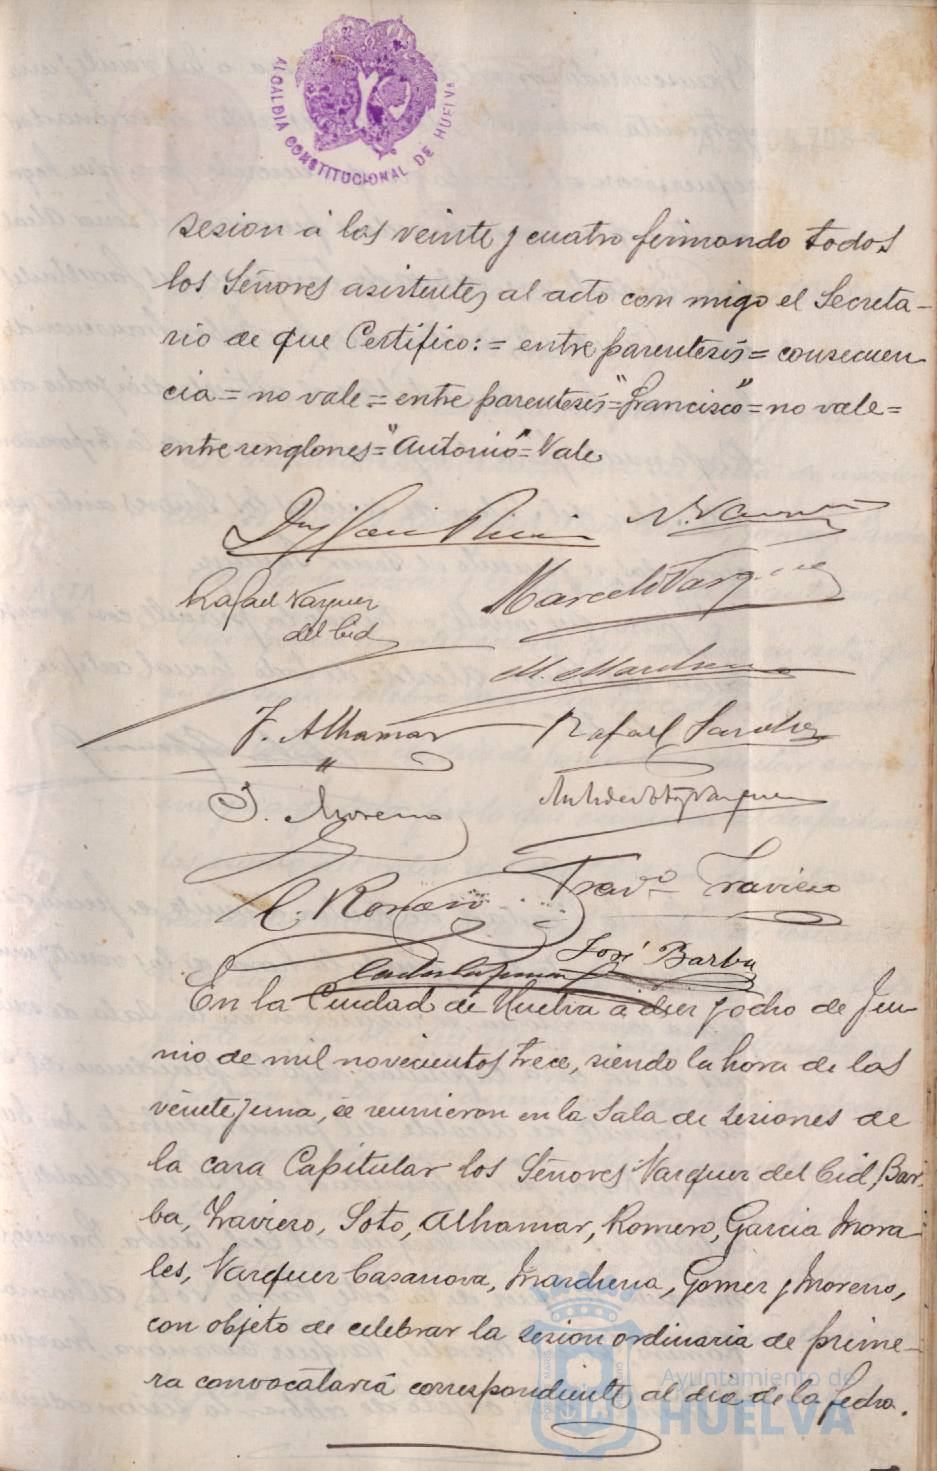 ALCALDIA CONSTITUCIONAL DE HUELVA
sesion á las veinte y cuatro firmando todos
los Señores asistentes al acto con migo el Secreta-
rio de que Certifico: = entre parentesis = consecuen-
cia = no vale = entre parentesis = "Francisco" = no vale =
entre renglones = "Antonio" = Vale
Rafael Vazquez
del Cid
Marcelo Vazquez
M. Marchena
F. Alhamar
Rafael Sanchez
J. Moreno
Vazquez
C. Romero
Trav.º Traviero
José Barba
En la Ciudad de Huelva á diez y ocho de Ju-
nio de mil novecientos trece, siendo la hora de las
veinte y una, se reunieron en la Sala de sesiones de
la casa Capitular los Señores Vazquez del Cid, Bar-
ba, Traviero, Soto, Alhamar, Romero, Garcia Mora-
les, Vazquez Casanova, Marchena, Gomez y Moreno,
con objeto de celebrar la sesion ordinaria de prime-
ra convocataria correspondiente al dia de la fecha.
Ayuntamiento de
HUELVA